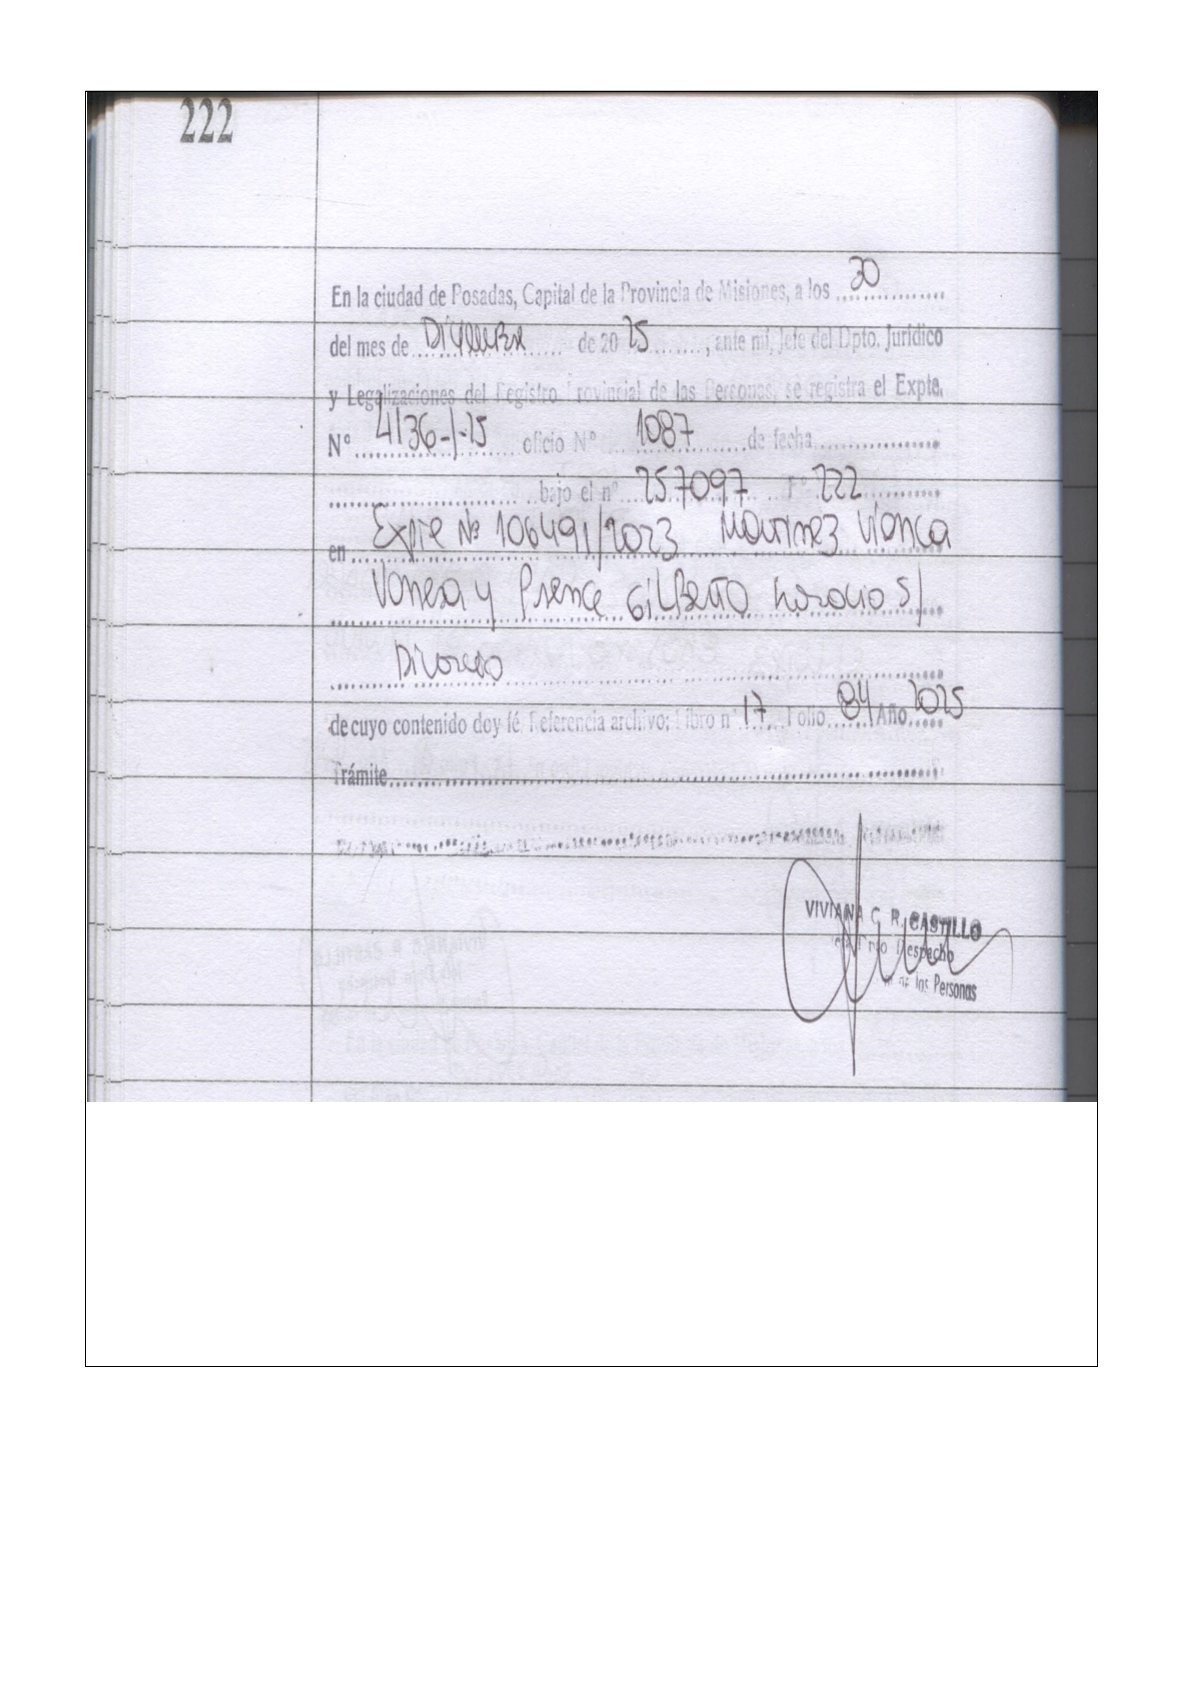 222
En la ciudad de Posadas, Capital de la Provincia de Misiones, a los 30
del mes de Diciembre de 2025, ante mi, Jefe del Dpto. Jurídico
y Legalizaciones del Registro Provincial de las Personas, se registra el Expte.
N° 4136-J-25 oficio N° 1087 de fecha
bajo el n° 257097 F° 222
en Expte Nº 106491/2023 Martinez Vianca
Vanesa y Prence Gilberto horacio S/
Divorcio
de cuyo contenido doy fé. Referencia archivo: Libro n° 17 Folio 84 Año 2025
Trámite
VIVIANA C. R. CASTILLO
Dpto Despacho
de las Personas